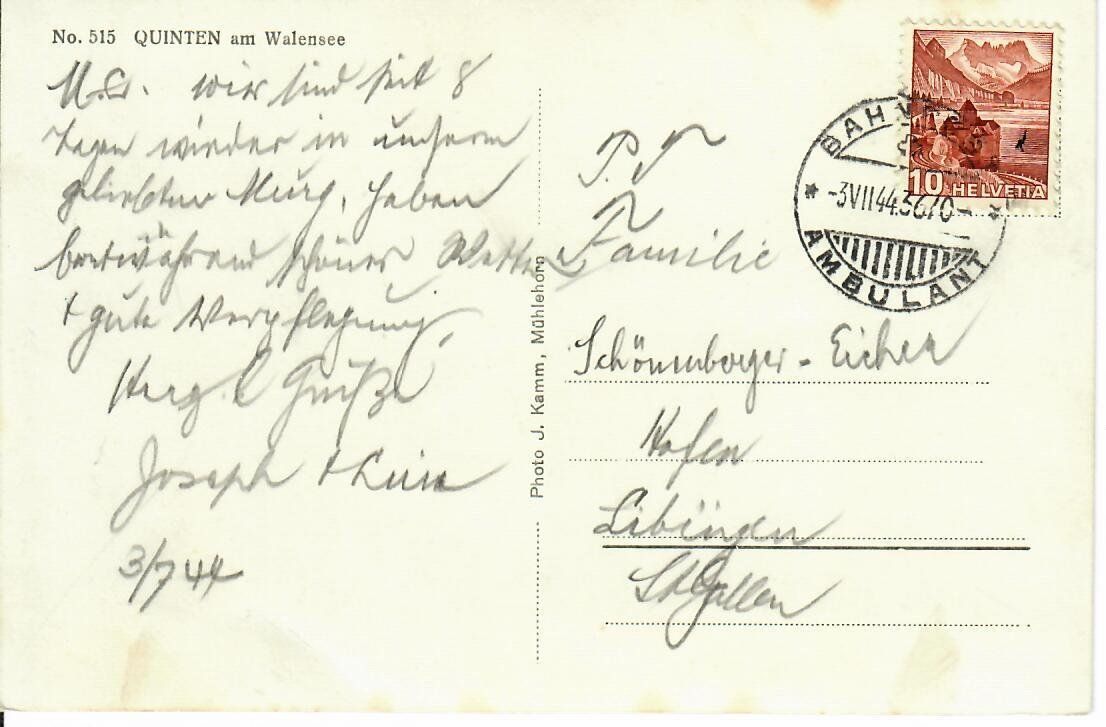 No. 515 QUINTEN am Walensee
M. L. wir sind seit 8
Tagen wieder in unserem
geliebten Murg, haben
fortwährend schönes Wetter
+ gute Verpflegung,
Herzl Grüße
Joseph + Luise
3/7 44
Photo J. Kamm, Mühlehorn
P. T
Familie
Schönenberger - Eicher
Hofen
Libingen
St Gallen
BAHN
-3VII44.3670-
AMBULANT
10 HELVETIA